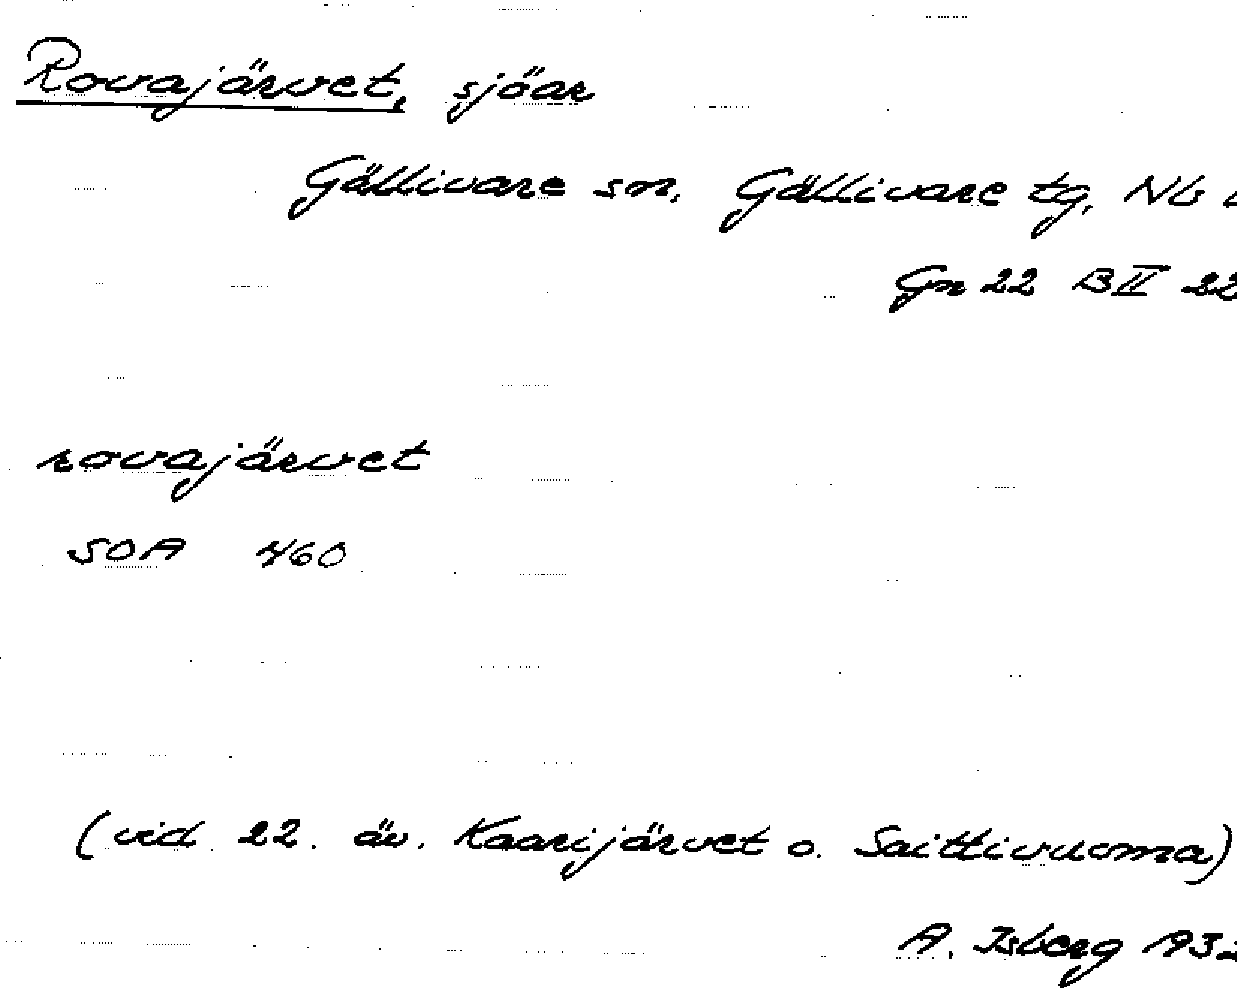 Rovajärvet, sjöar
Gällivare sn, Gällivare tg, Nb
Gn 22 BII 22
rovajärvet
SOA 460
(vid 22. äv. Kaarijärvet o. Saittivuoma)
A. Isberg